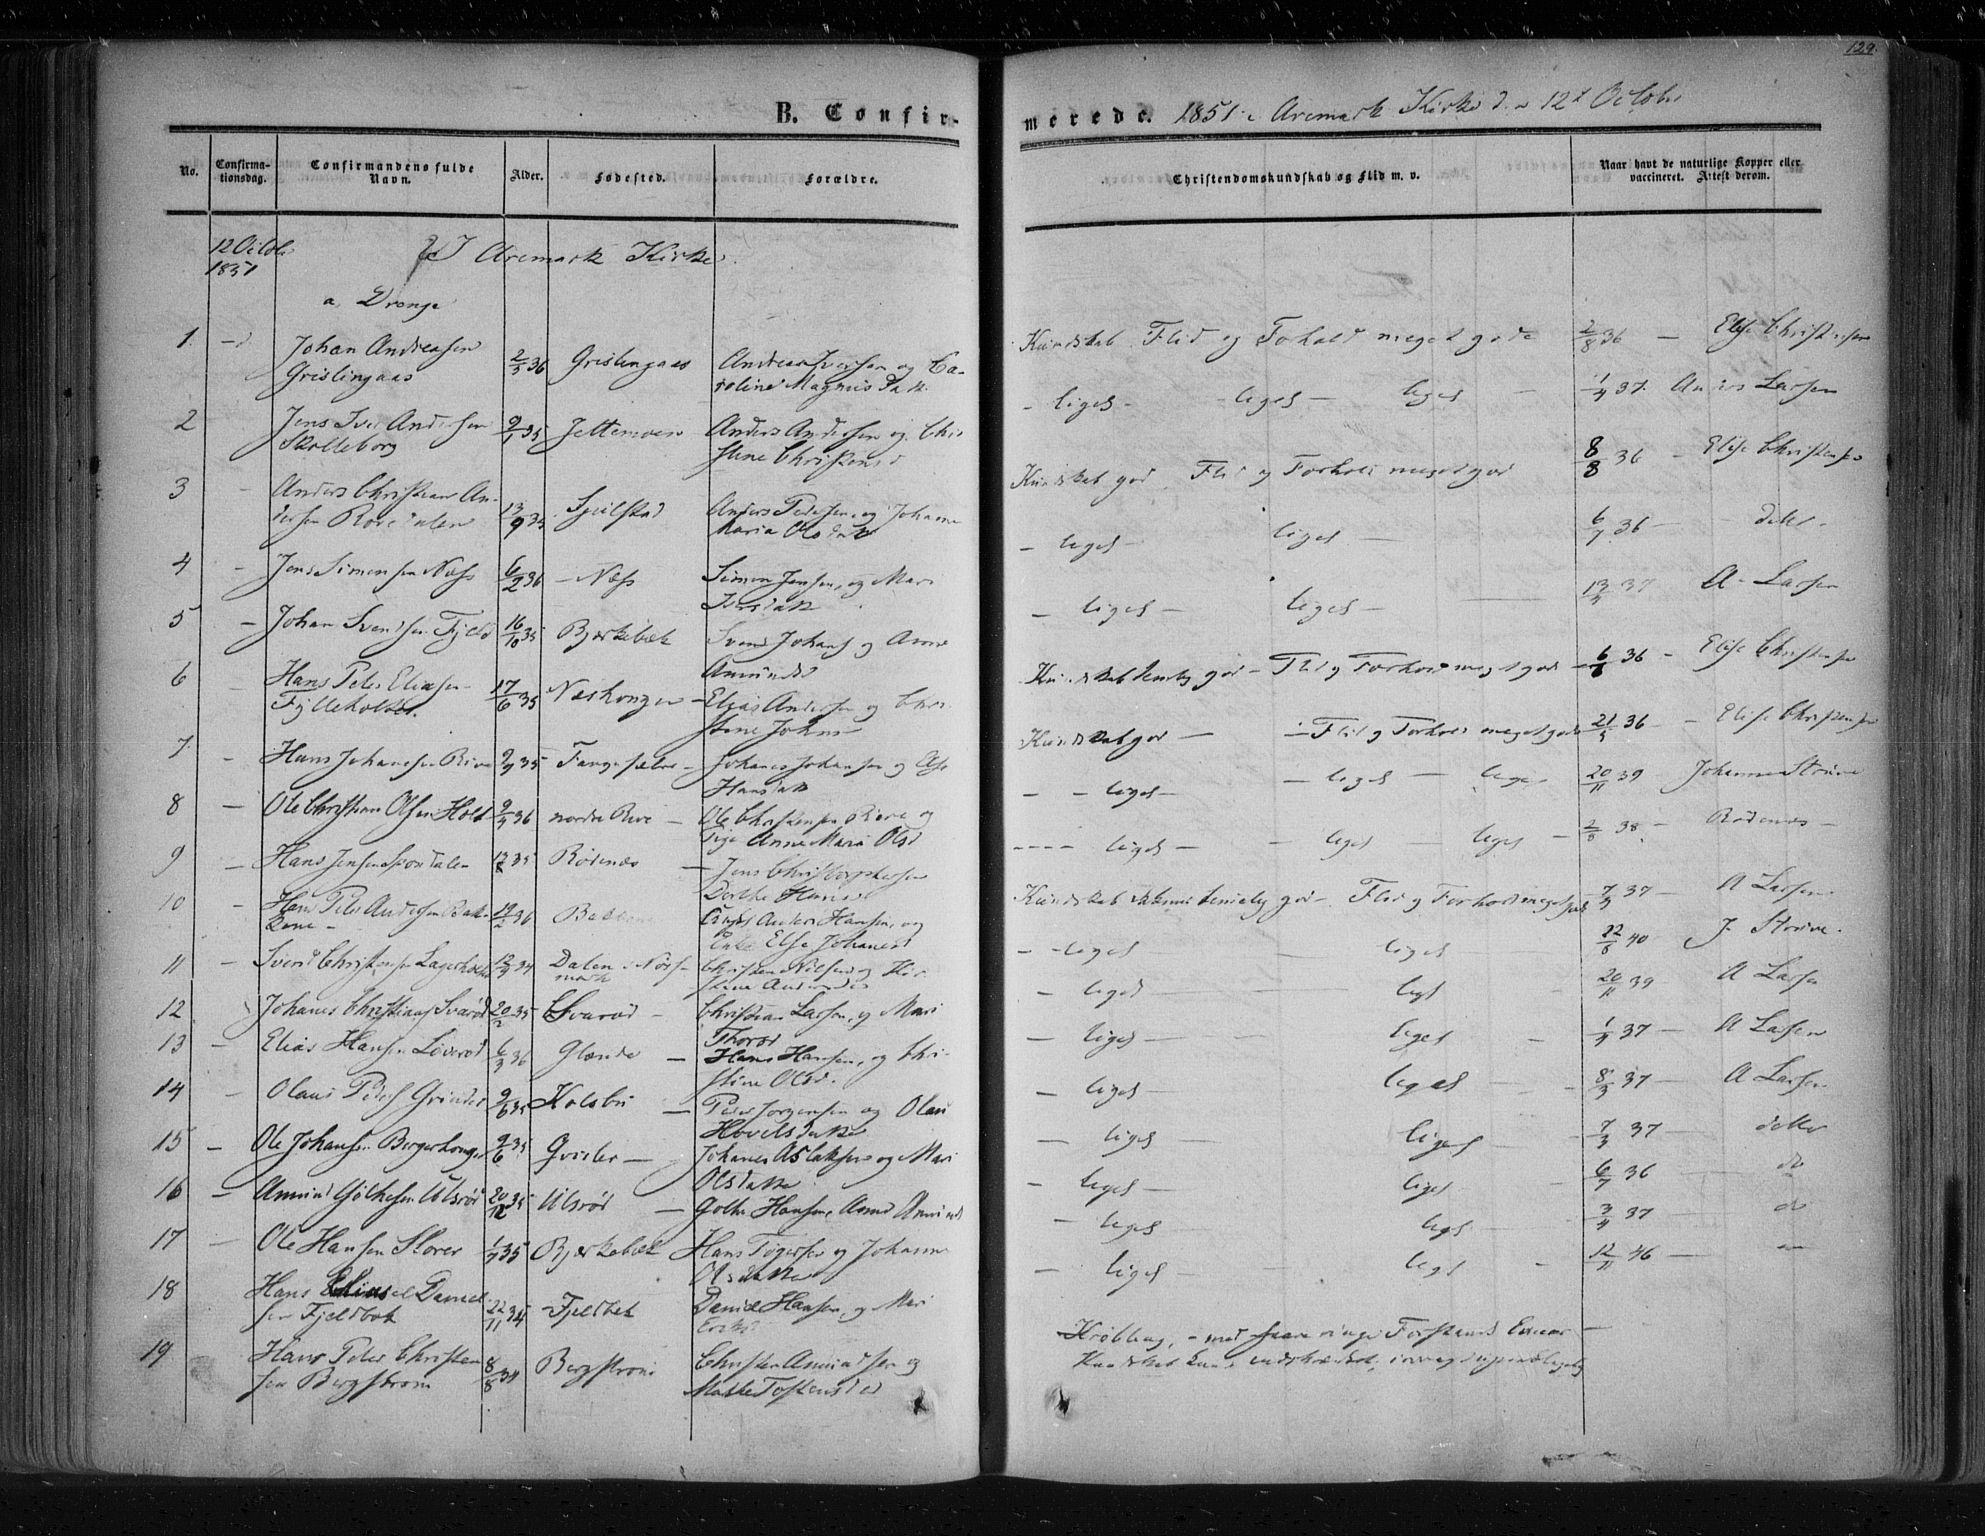 129.
B. Confir-
merede. 1851 i Aremark Kirke d. 12t Octobr
No.
Confirma-
tionsdag.
Confirmandens fulde
Navn.
Alder.
Fødested.
Forældre.
Christendomskundskab og Flid m. v.
Naar havt de naturlige Kopper eller
vaccineret. Attest derom.
12 Octbr
1851
I Aremark Kirke.
a, Drenge
1 Johan Andreasen 2/5 36 Grislingaas Andreas Iversen og Ca-
Grislingaas roline Magnus Datt.
Kundskab Flid og Forhold meget gode 2/8 36 — Elise Christensen
2 Jens Iver Andersen 9/1 35 Jettemoen Anders Andersen og Chri
Skolleborg stine Christensd
- liges - - liges - liges - 1/4 37. Anders Larsen
3 Anders Christian An- 13/9 35 Anders Pedersen og Johanne
dersen Maria Olsdatt
Kundskab god Flid og Forhold meget god 8/8 36 — Elise Christensen
4 - Jens Simonsen Næss 6/2 36 - Næss Simon Jensen og Mari
- liges - liges - 6/7 36 — ditto.
5 - Johan Svendsen Fjeld 16/10 35 Bjerkebæk Svend Johans og Anne
Amunds
- liges - liges - 37 A. Larsen
6 - Hans Peter Eliasen 17/6 35 Næskongen - Elias Andersen og Chri
Fylleholdt. stine Johns
Kundskab temlig god - Flid og Forhold meget god 6/6 36 - Elise Christensen
7 - Hans Johannesen Rive 9/9 35 Johanes Johansen og Else
Hansdatt
Kundskab god - - Flid og Forhold meget gode 21/5 36 - Elise Christensen
8 - Ole Christian Olsen Hold 9/4 36 nordre Rive - Ole Christensen Rive og
Pige Anne Maria Olsd
- - liges - - liges - liges 20/11 39 Johannes Strüve
9 - Hans Jensen 35 Rødenæs - Jens Christophersen
Dorthe Hansd
- liges - - liges - liges - 2/8 38. - Rødenæs -
10 - Hans Peter Andersen Bak- 19/2 36 Anders Hansen, og
Enke Else Johanesd
Kundskab temmelig god - Flid og Forhold meget god 7/3 37 - A Larsen
11 - Svend Christensen Lagerholt 34 Dalen i Nors- Christen Nilsen og Kir
mark stine Andersd
- liges liges 22/8 40 J. Strüve.
12 - Johanes Christians Svarød 20/2 35 Svarød - Christian Larsen, og Mari
Thorsd
- liges - liges 20/11 39 A Larsen
13 - Elias Hansen Løverød 6/3 36 Glænde - Hans Hansen, og Chri-
stine Olsd.
- liges - liges - 1/4 37 - A Larsen
14 - Olaus Peders Grinder 9/6 35 Kolsbu - Peder Jorgensen og Olau
Hovelsdatter
- liges - liges - 8/3 37 - A Larsen
15 - Ole Johansen Bergerkongen 9/6 35 - Johanes Aslaksen og Mari
Olsdatter
- liges liges 7/3 37 - ditto
16 - Amund Gulthesen Ulsrød 20/12 35 Ulsrød - Golthe Hansen, Anne Amunds
- liges - liges 6/7 36 do
17 - Ole Hansen Slorer 1/7 35 Bjerkebæk Hans Tøgersen og Johanne
Olsdatter
- liges - liges 3/4 37 - do
18 Hans Daniel- 22/11 34 - Fjeldbek Daniel Hansen, og Mari
sen Fjeldbek Eriks
- liges - liges 12/11 46 -
19 Hans Peter Christen 8/8 34 Bergstrøm Christen Amundsen og
sen Bergstrøm Torstensd
Krøbling, - med ringe Forstand Evner -
Kundskab